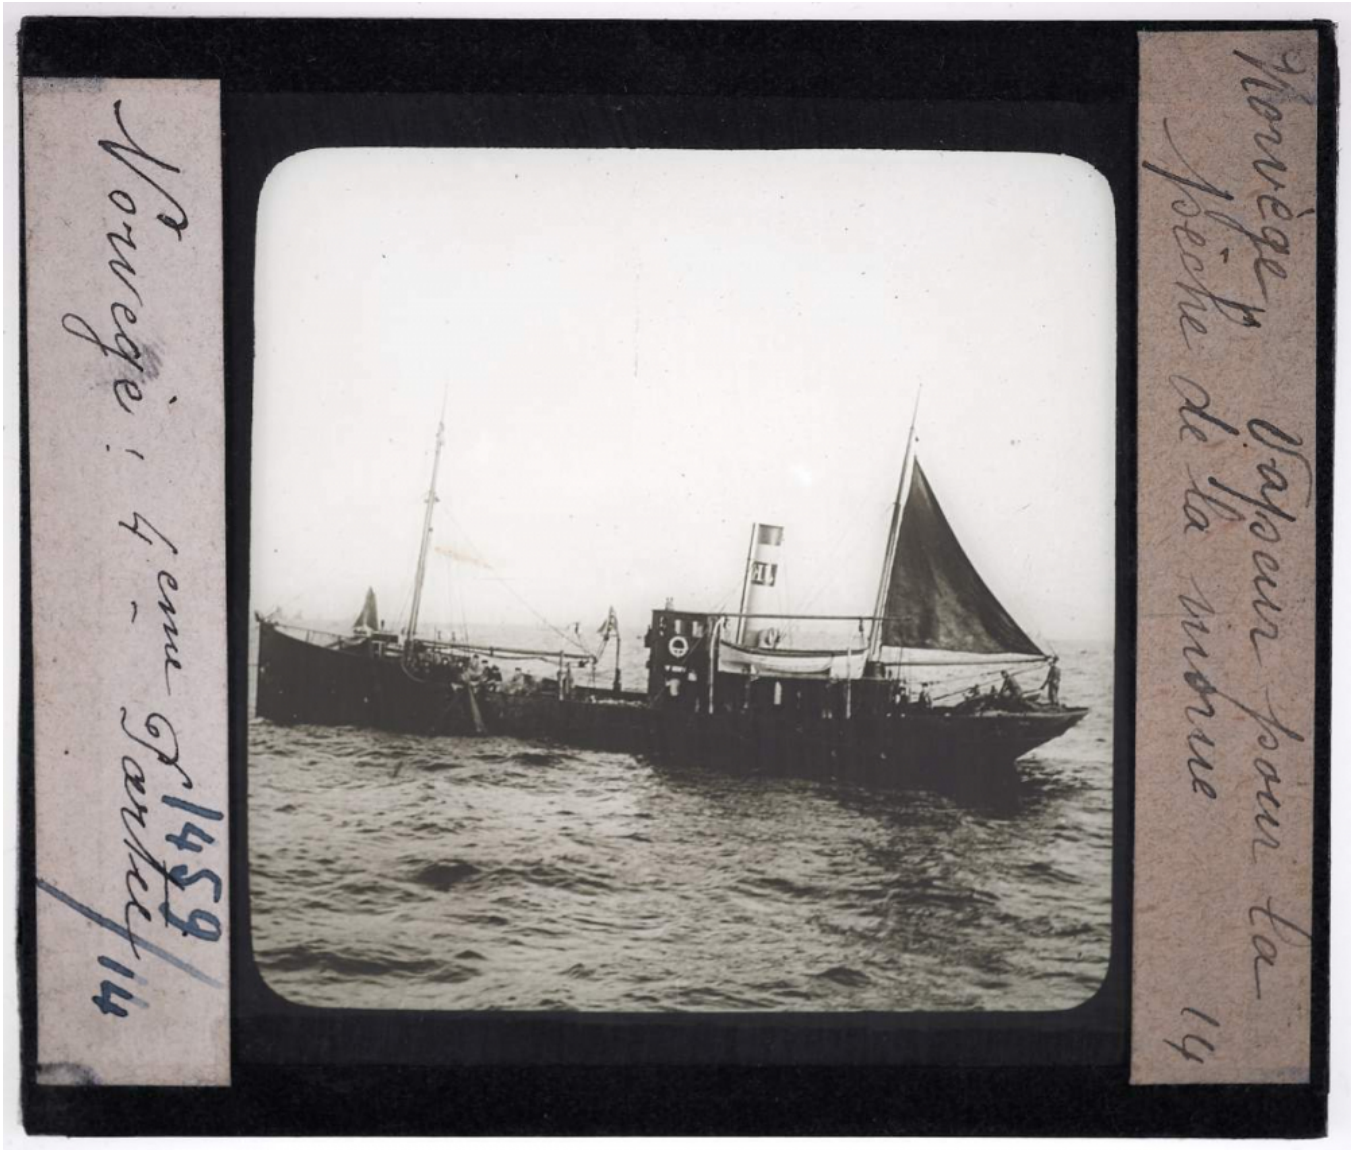 Norvège : 4 eme Partie / 14
1459
Norvège Vapeur pour la
pêche de la morue 14